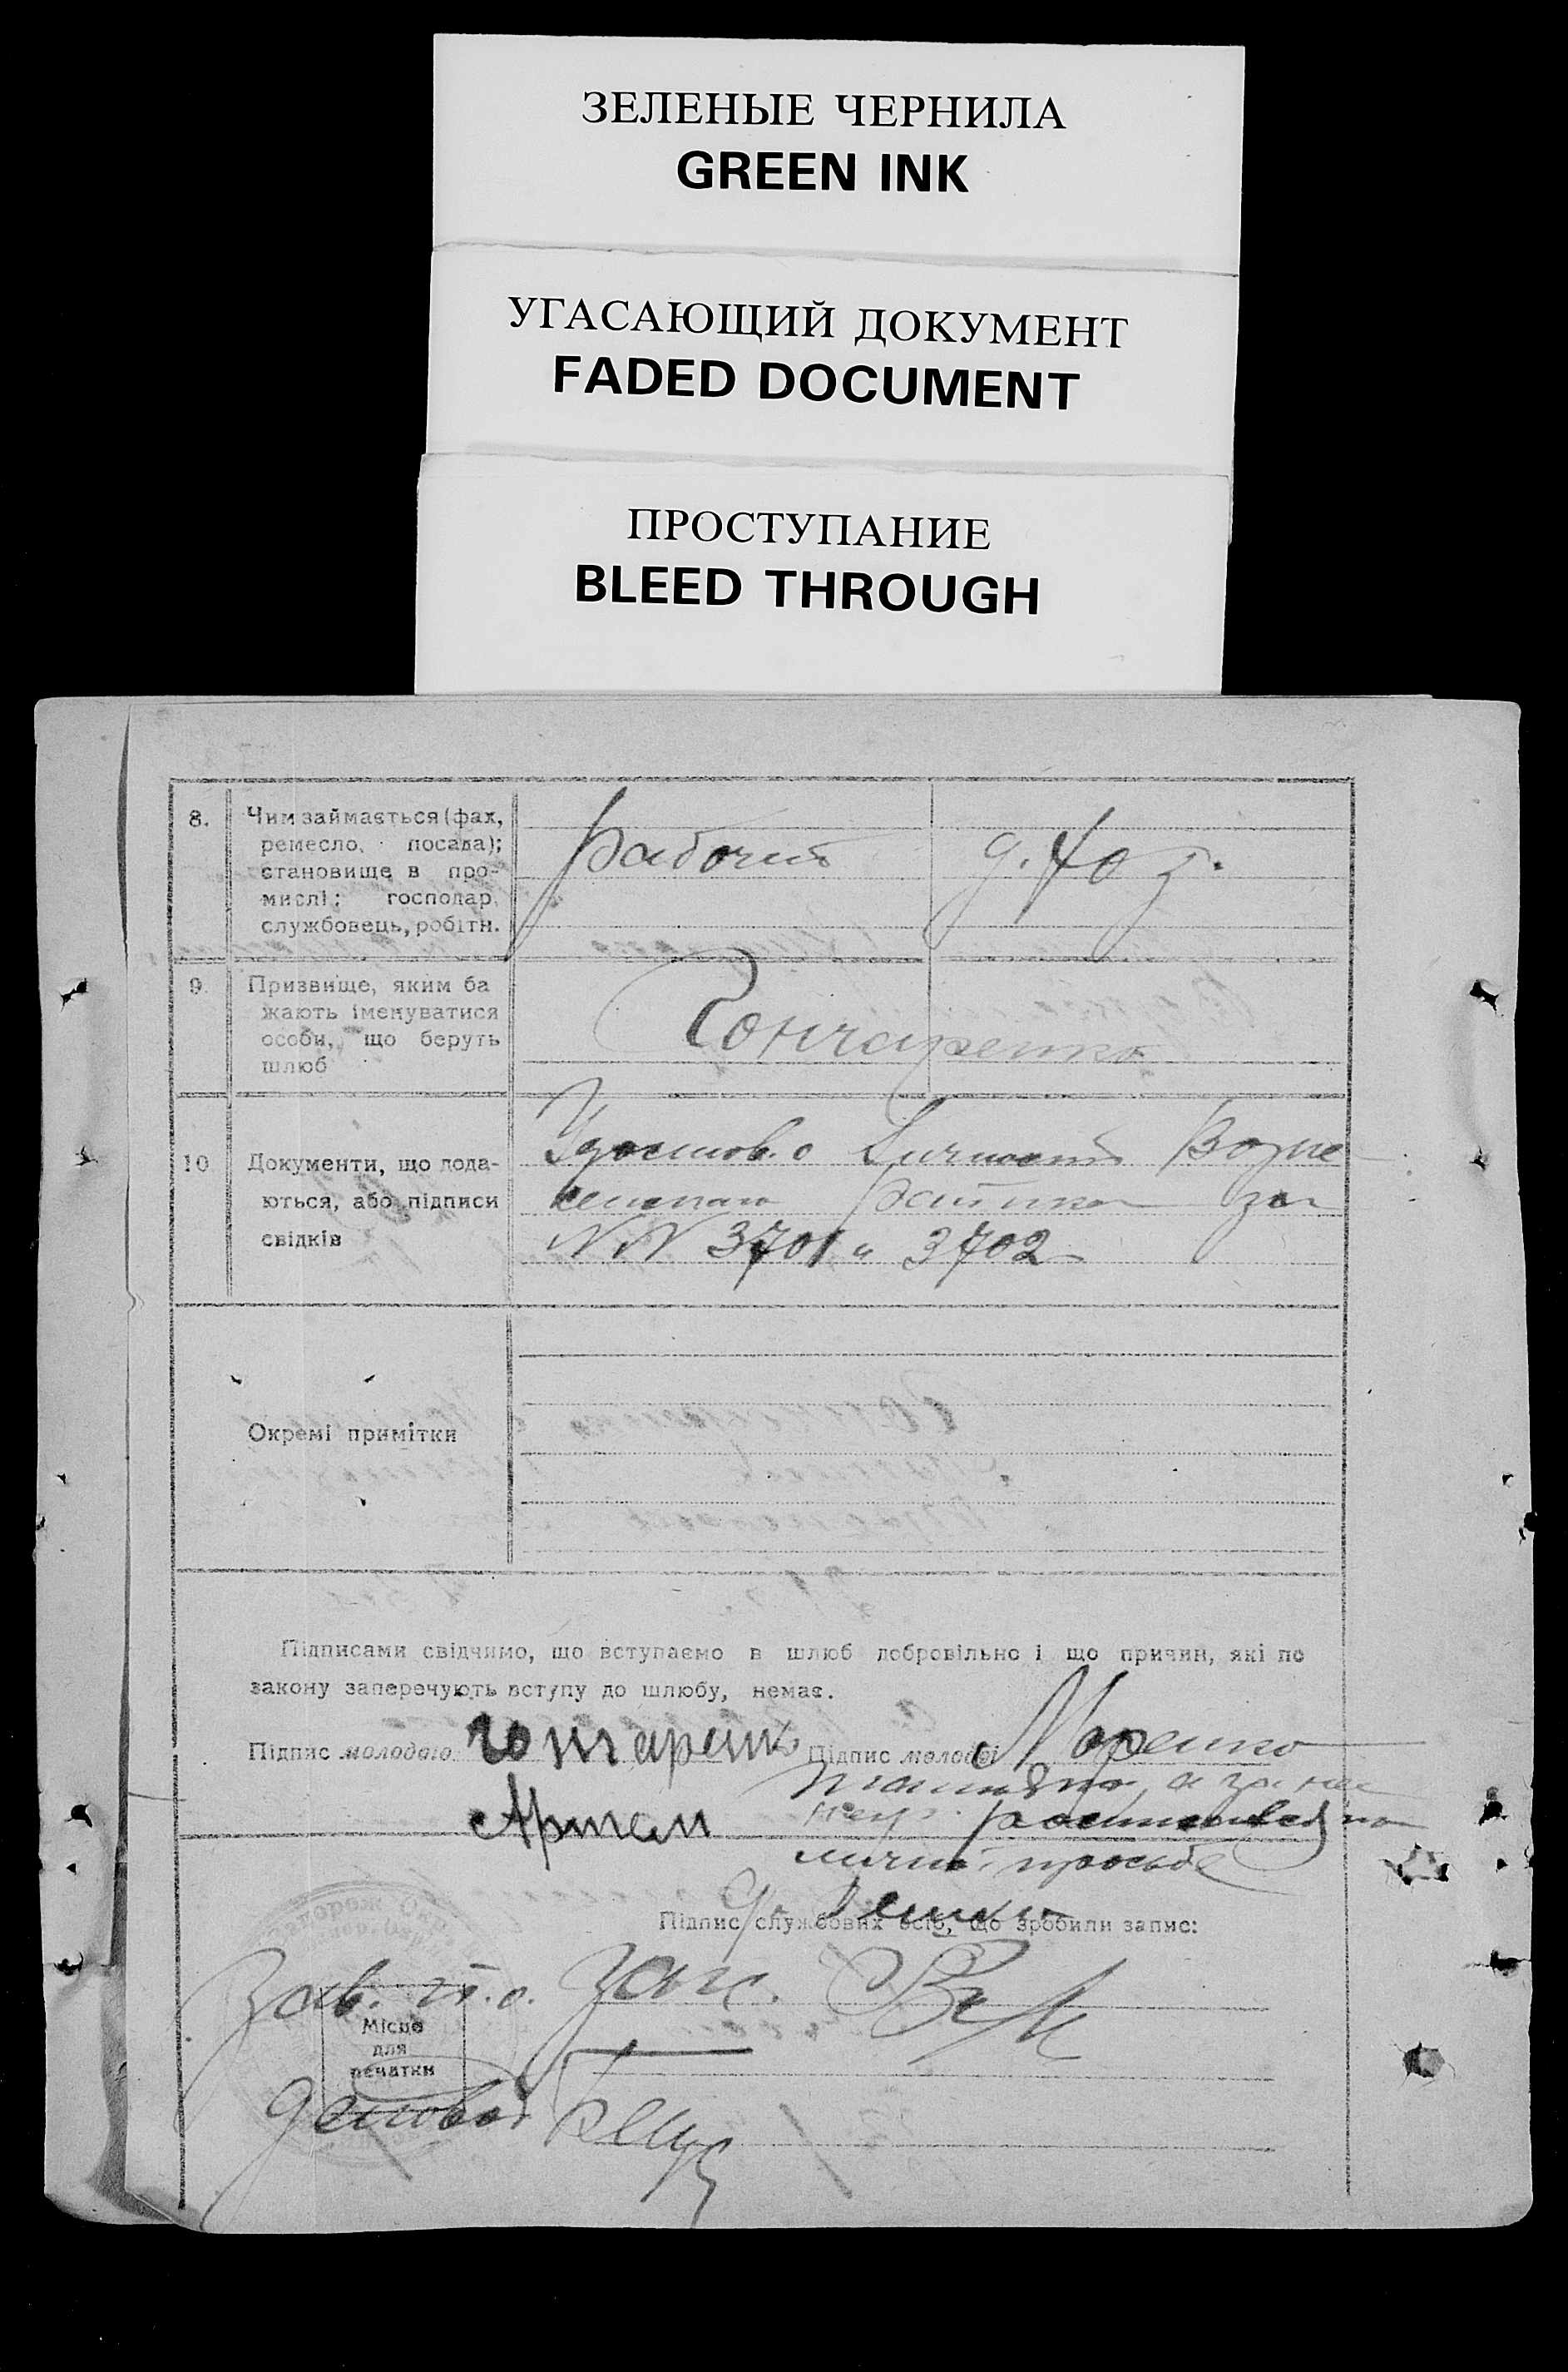 ЗЕЛЕНЫЕ ЧЕРНИЛА
GREEN INK
УГАСАЮЩИЙ ДОКУМЕНТ
FADED DOCUMENT
ПРОСТУПАНИЕ
BLEED THROUGH
8.
Чим займається (фах,
ремесло, посада);
становище в про-
мислі: господар,
службовець, робітн.
рабочий
д. хоз.
9.
Призвище, яким ба
жають іменуватися
особи, що беруть
шлюб
Гончаренко
10
Документи, що дода-
ються, або підписи
свідків
Удостов. о личности Возне
сенского за
NN 3701 и 3702
Окремі примітки
Підписами свідчимо, що вступаємо в шлюб добровільно і що причин, які по
закону заперечують вступу до шлюбу, немає.
Підпис молодого
Гончаренко
Артем
Підпис молодої
а за нее
негр. росписався по
личной просьбе
Підпис службових осіб, що зробили запис:
Зав. п.о. Загс.
Місце
для
печатки